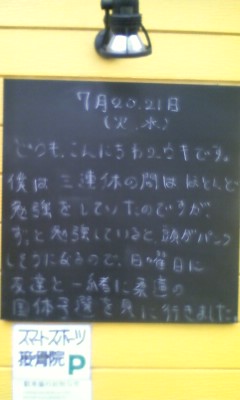 7月20.21日
(火.水)
どうも、こんにちわユウキです。
僕は三連休の間はほとんど
勉強をしていたのですが、
ずっと勉強していると、頭がパンク
しそうになるので、日曜日に
友達と一緒に柔道の
国体予選を見に行きました。
スマートスポーツ
接骨院 P